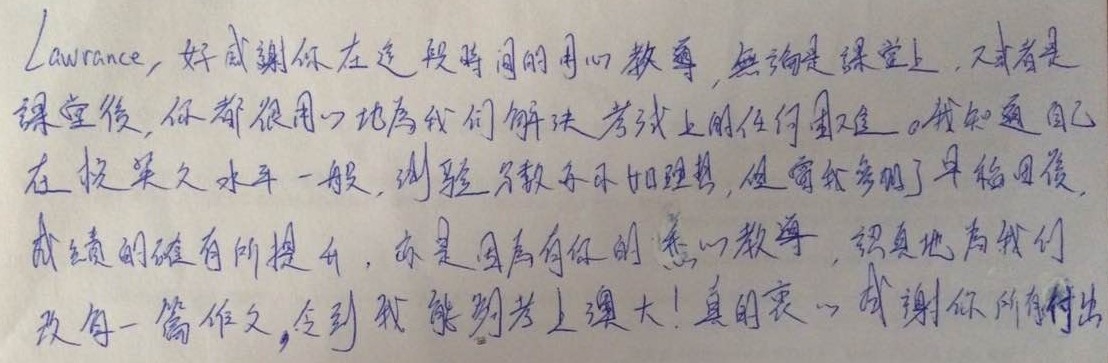 Lawrance, 好感謝你在這段時間的用心教導, 無論是課堂上, 又或者是
課堂後, 你都很用心地為我們解決考試上的任何困難。我知道自己
在校英文水平一般, 測驗分數亦不如理想, 但當我參加了早稻田後,
成績的確有所提升, 亦是因為有你的悉心教導, 認真地為我們
改每一篇作文, 令到我能夠考上澳大! 真的衷心感謝你所有付出